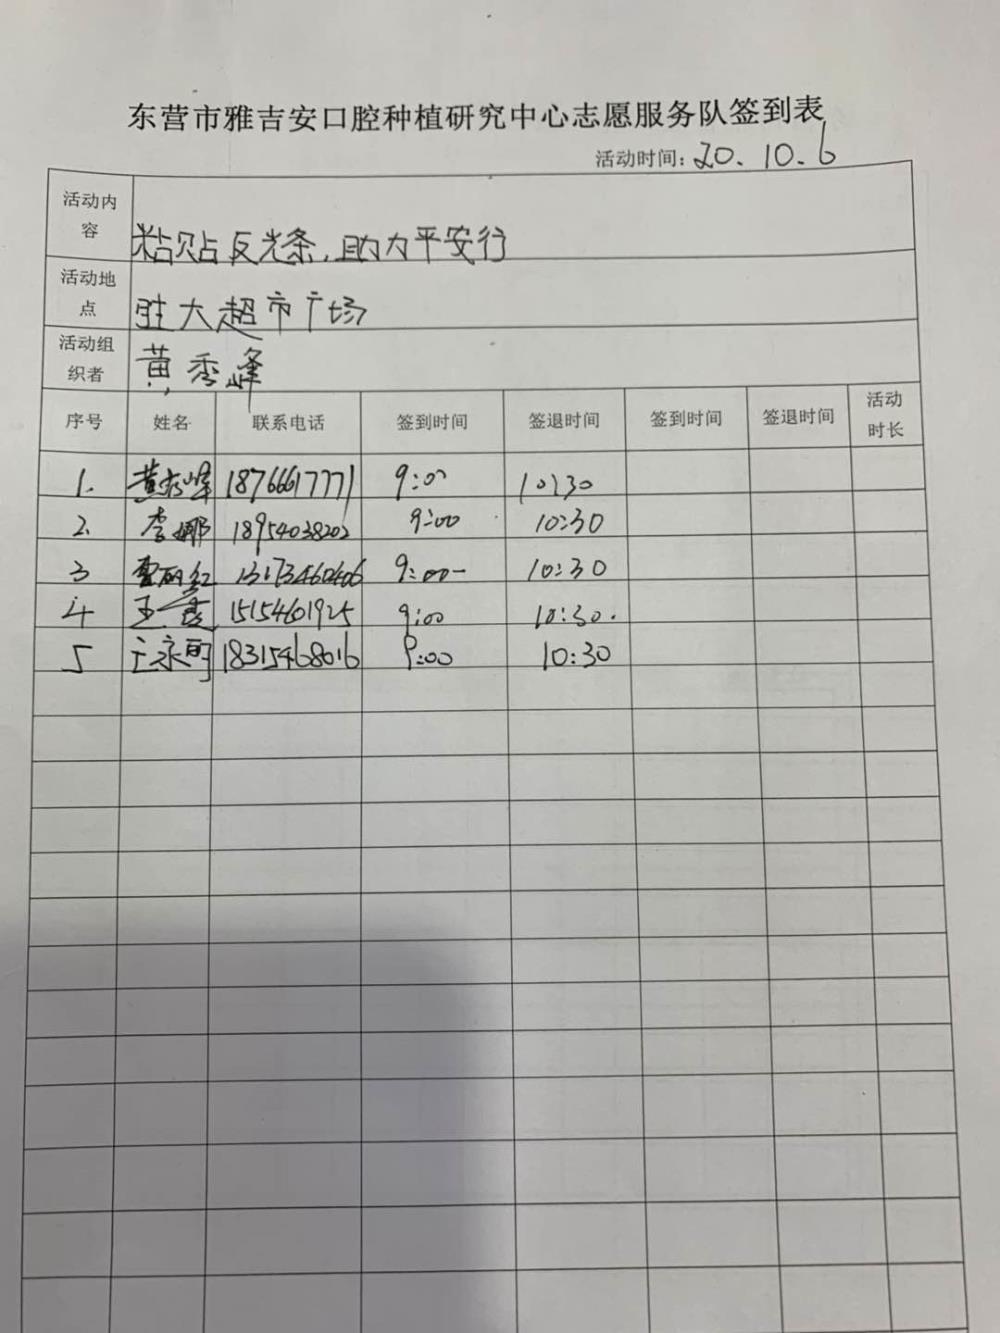 东营市雅吉安口腔种植研究中心志愿服务队签到表
活动时间: 20.10.6
活动内容 粘贴反光条,助力平安行
活动地点 胜大超市广场
活动组织者 黄秀峰
序号 姓名 联系电话 签到时间 签退时间 签到时间 签退时间 活动时长
1. 黄秀峰 18766617771 9:00 10:30
2. 李娜 18954038202 9:00 10:30
3 丽红 13173460406 9:00 10:30
4 王 15154601925 9:00 10:30.
5 永丽 18315468016 9:00 10:30